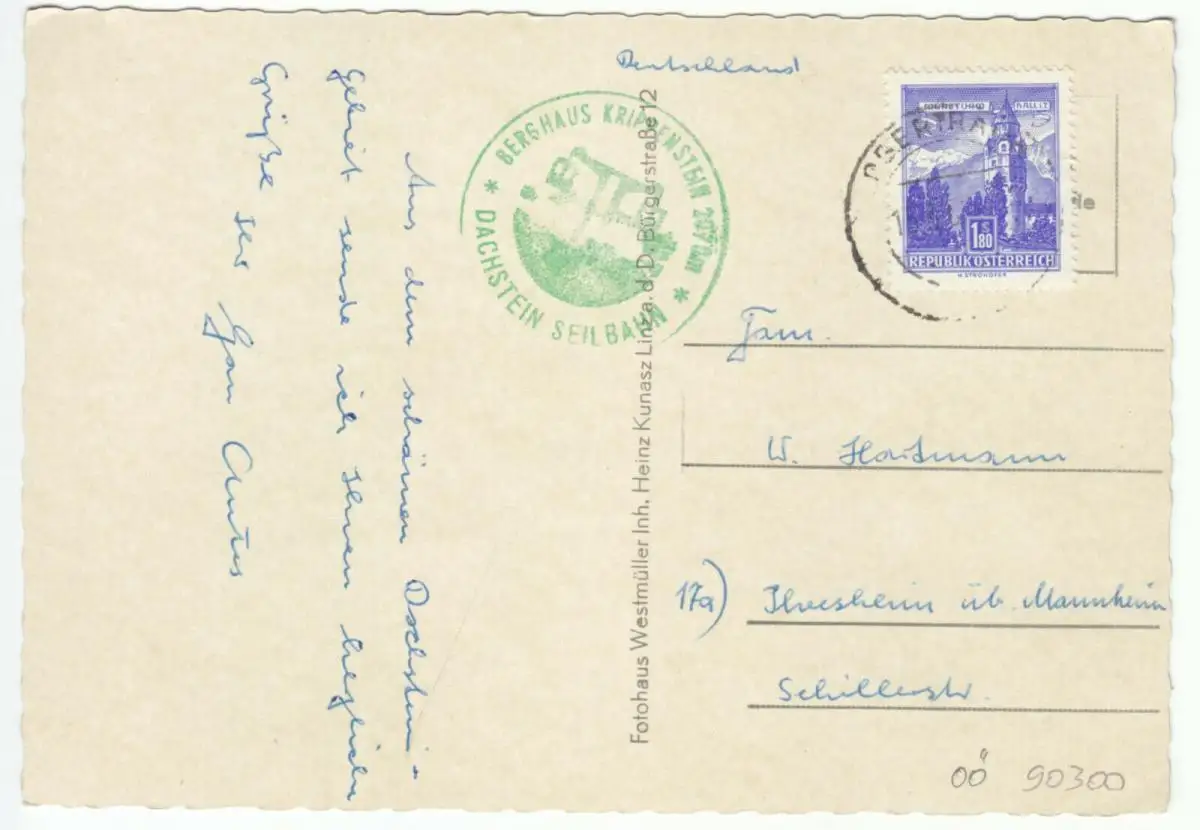 Deutschland
BERGHAUS KRIPPENSTEIN 2070m
* DACHSTEIN SEILBAHN *
MÜNZTURM HALL i.T.
OBERTRAUN
1 S 80
REPUBLIK ÖSTERREICH
H. STROHOFER
Aus dem schönen Dachstein-
gebiet sende ich Ihnen herzliche
Grüße Ihr
Fotohaus Westmüller Inh. Heinz Kunasz Linz a. d. D. Bürgerstraße 12
Fam.
W. Hartmann
17a) Ilvesheim üb. Mannheim
Schillerstr.
OÖ 90300